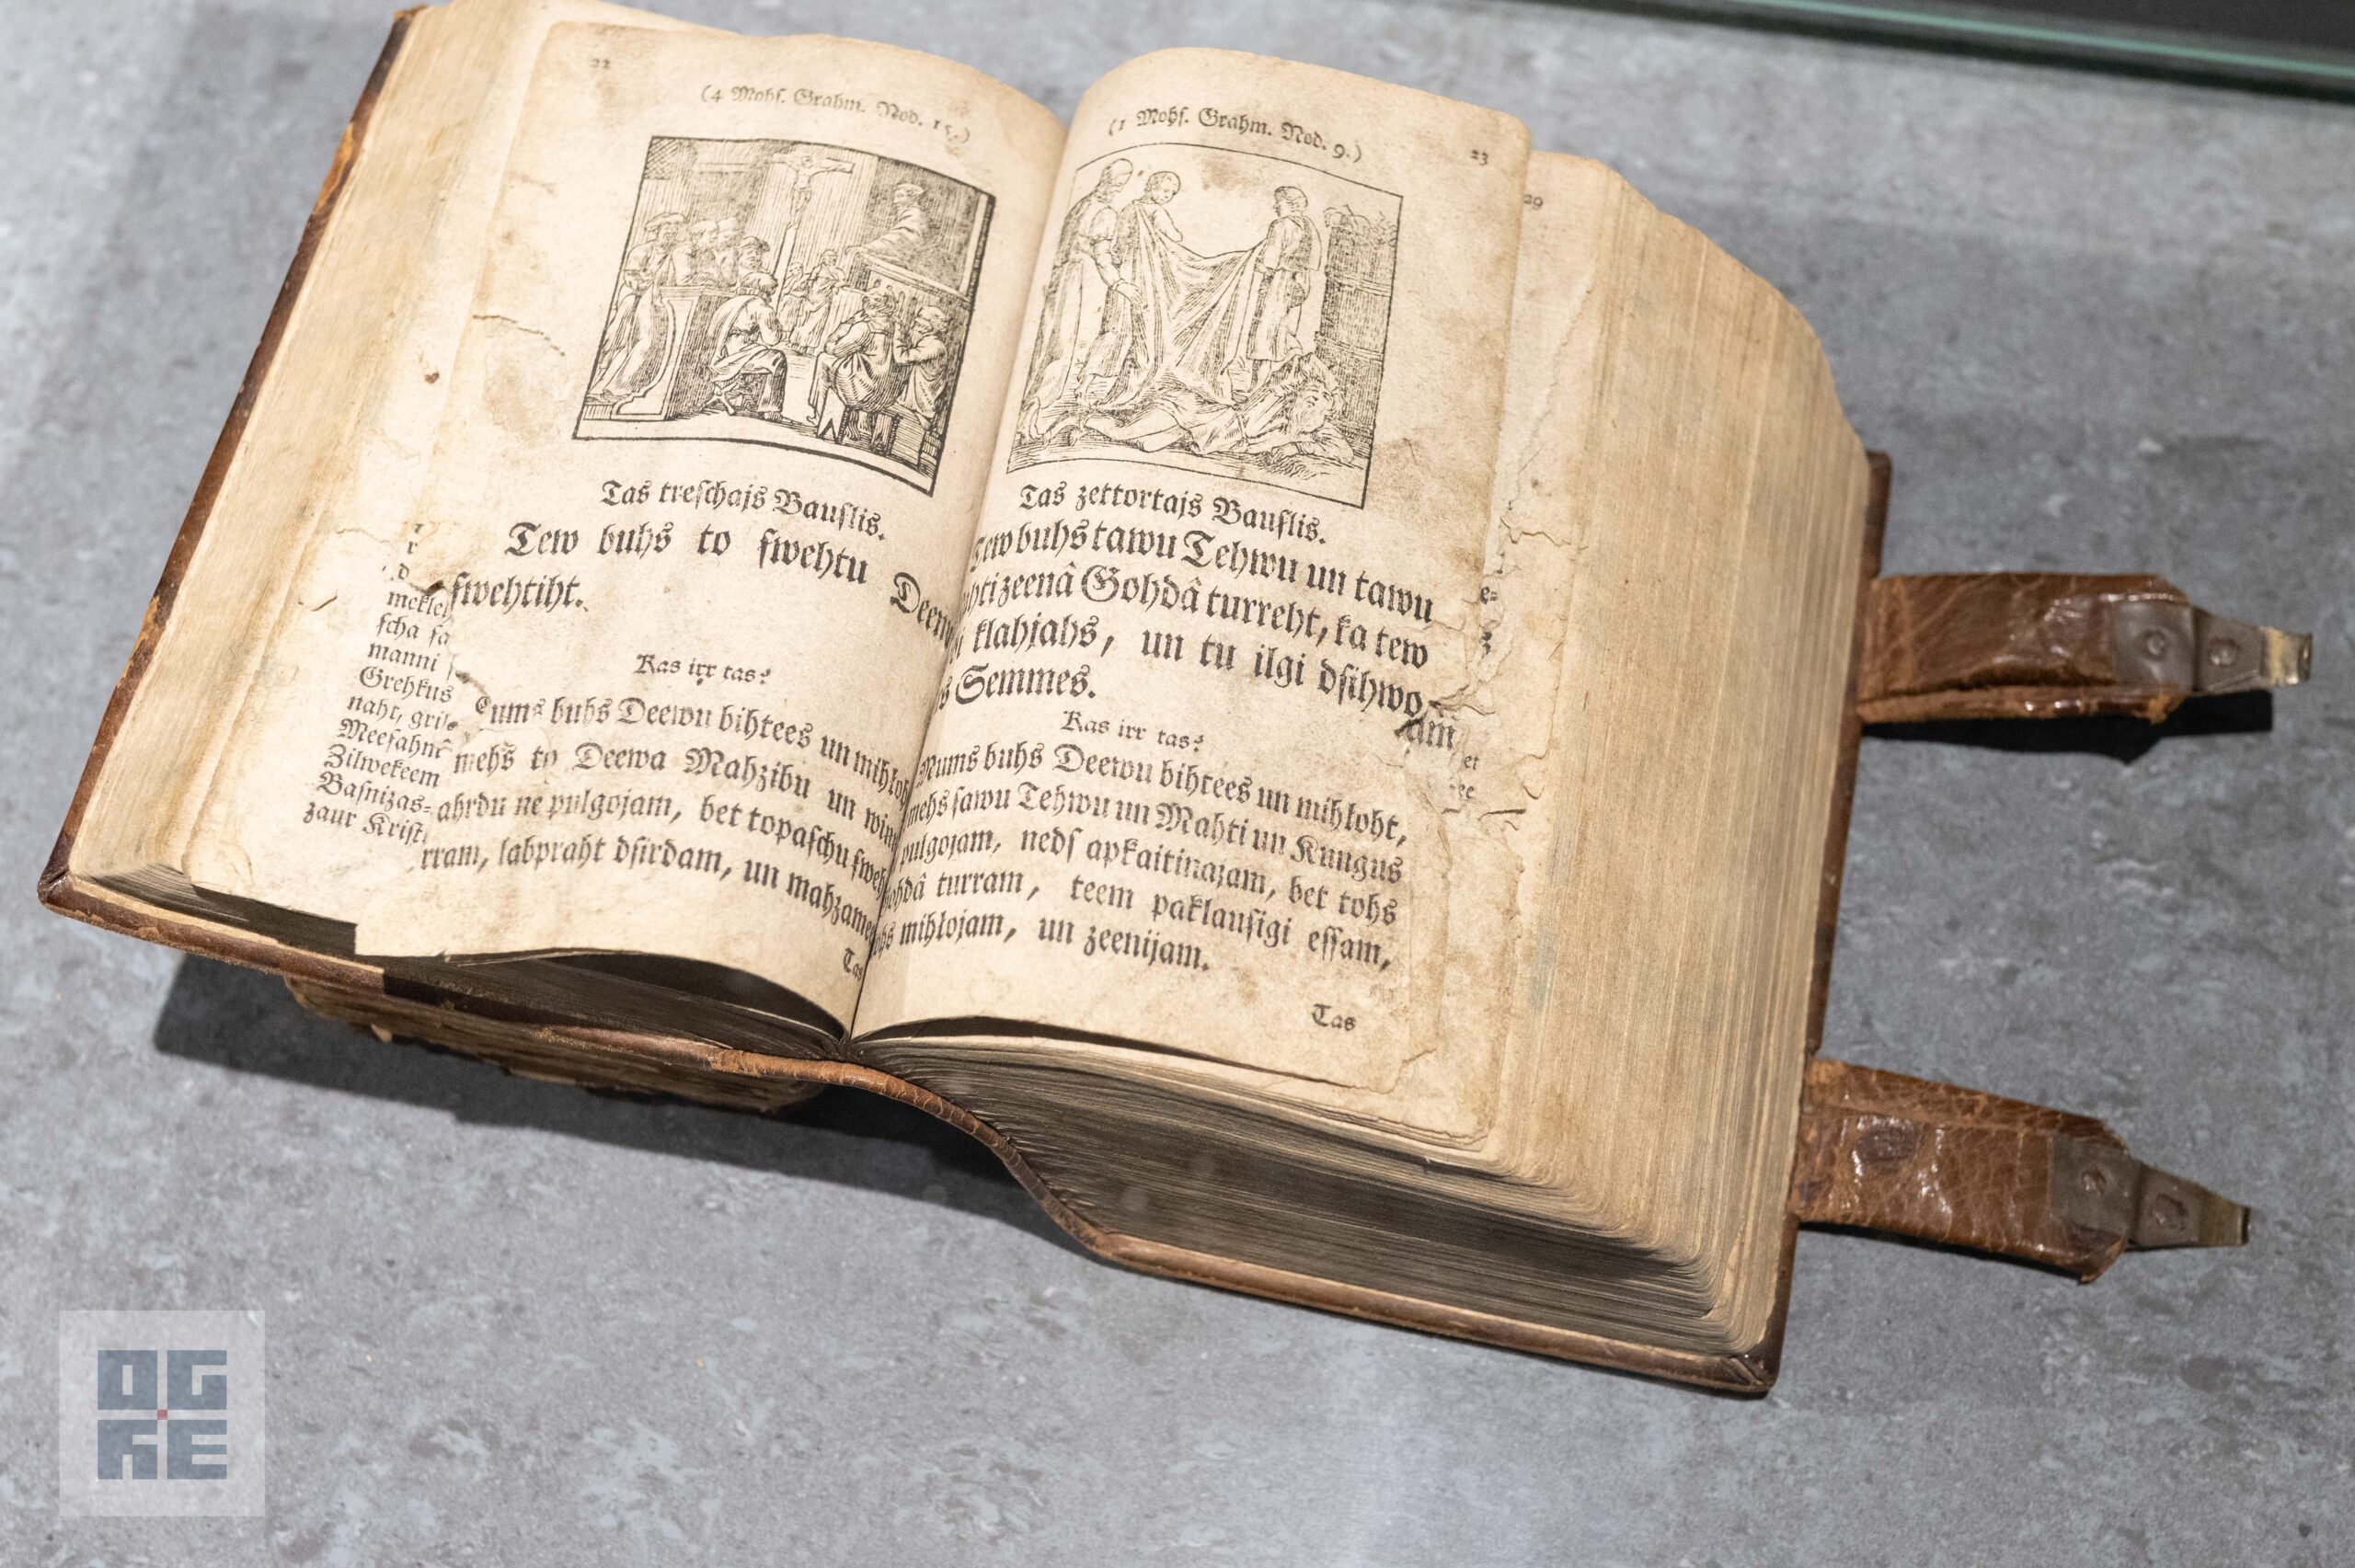 22
(4 Mohſ. Grahm. Nod. 15.)
Tas treſchajs Bauſlis.
Tew buhs to ſwehtu
ſwehtiht.
Kas irr tas?
buhs Deewu bihtees un
mehs to Deewa Mahzibu un
ne pulgojam, bet topaſchu
labpraht dſirdam, un
mekle
ſcha ſa
manni
Grehkus
naht,
Meeſahm
Zilwekeem
Baſnizas-
zaur Kriſt
(1 Mohſ. Grahm. Nod. 9.)
23
Tas zettortajs Bauſlis.
Tew buhs tawu Tehwu un tawu
Gohdâ turreht, ka tew
klahjahs, un tu ilgi dſihwo
Semmes.
Kas irr tas?
Mums buhs Deewu bihtees un mihloht,
mehs ſawu Tehwu un Mahti un Kungus
pulgojam, neds apkaitinajam, bet tohs
turram, teem paklauſigi eſſam,
mihlojam, un zeenijam.
Tas
29
OGRE